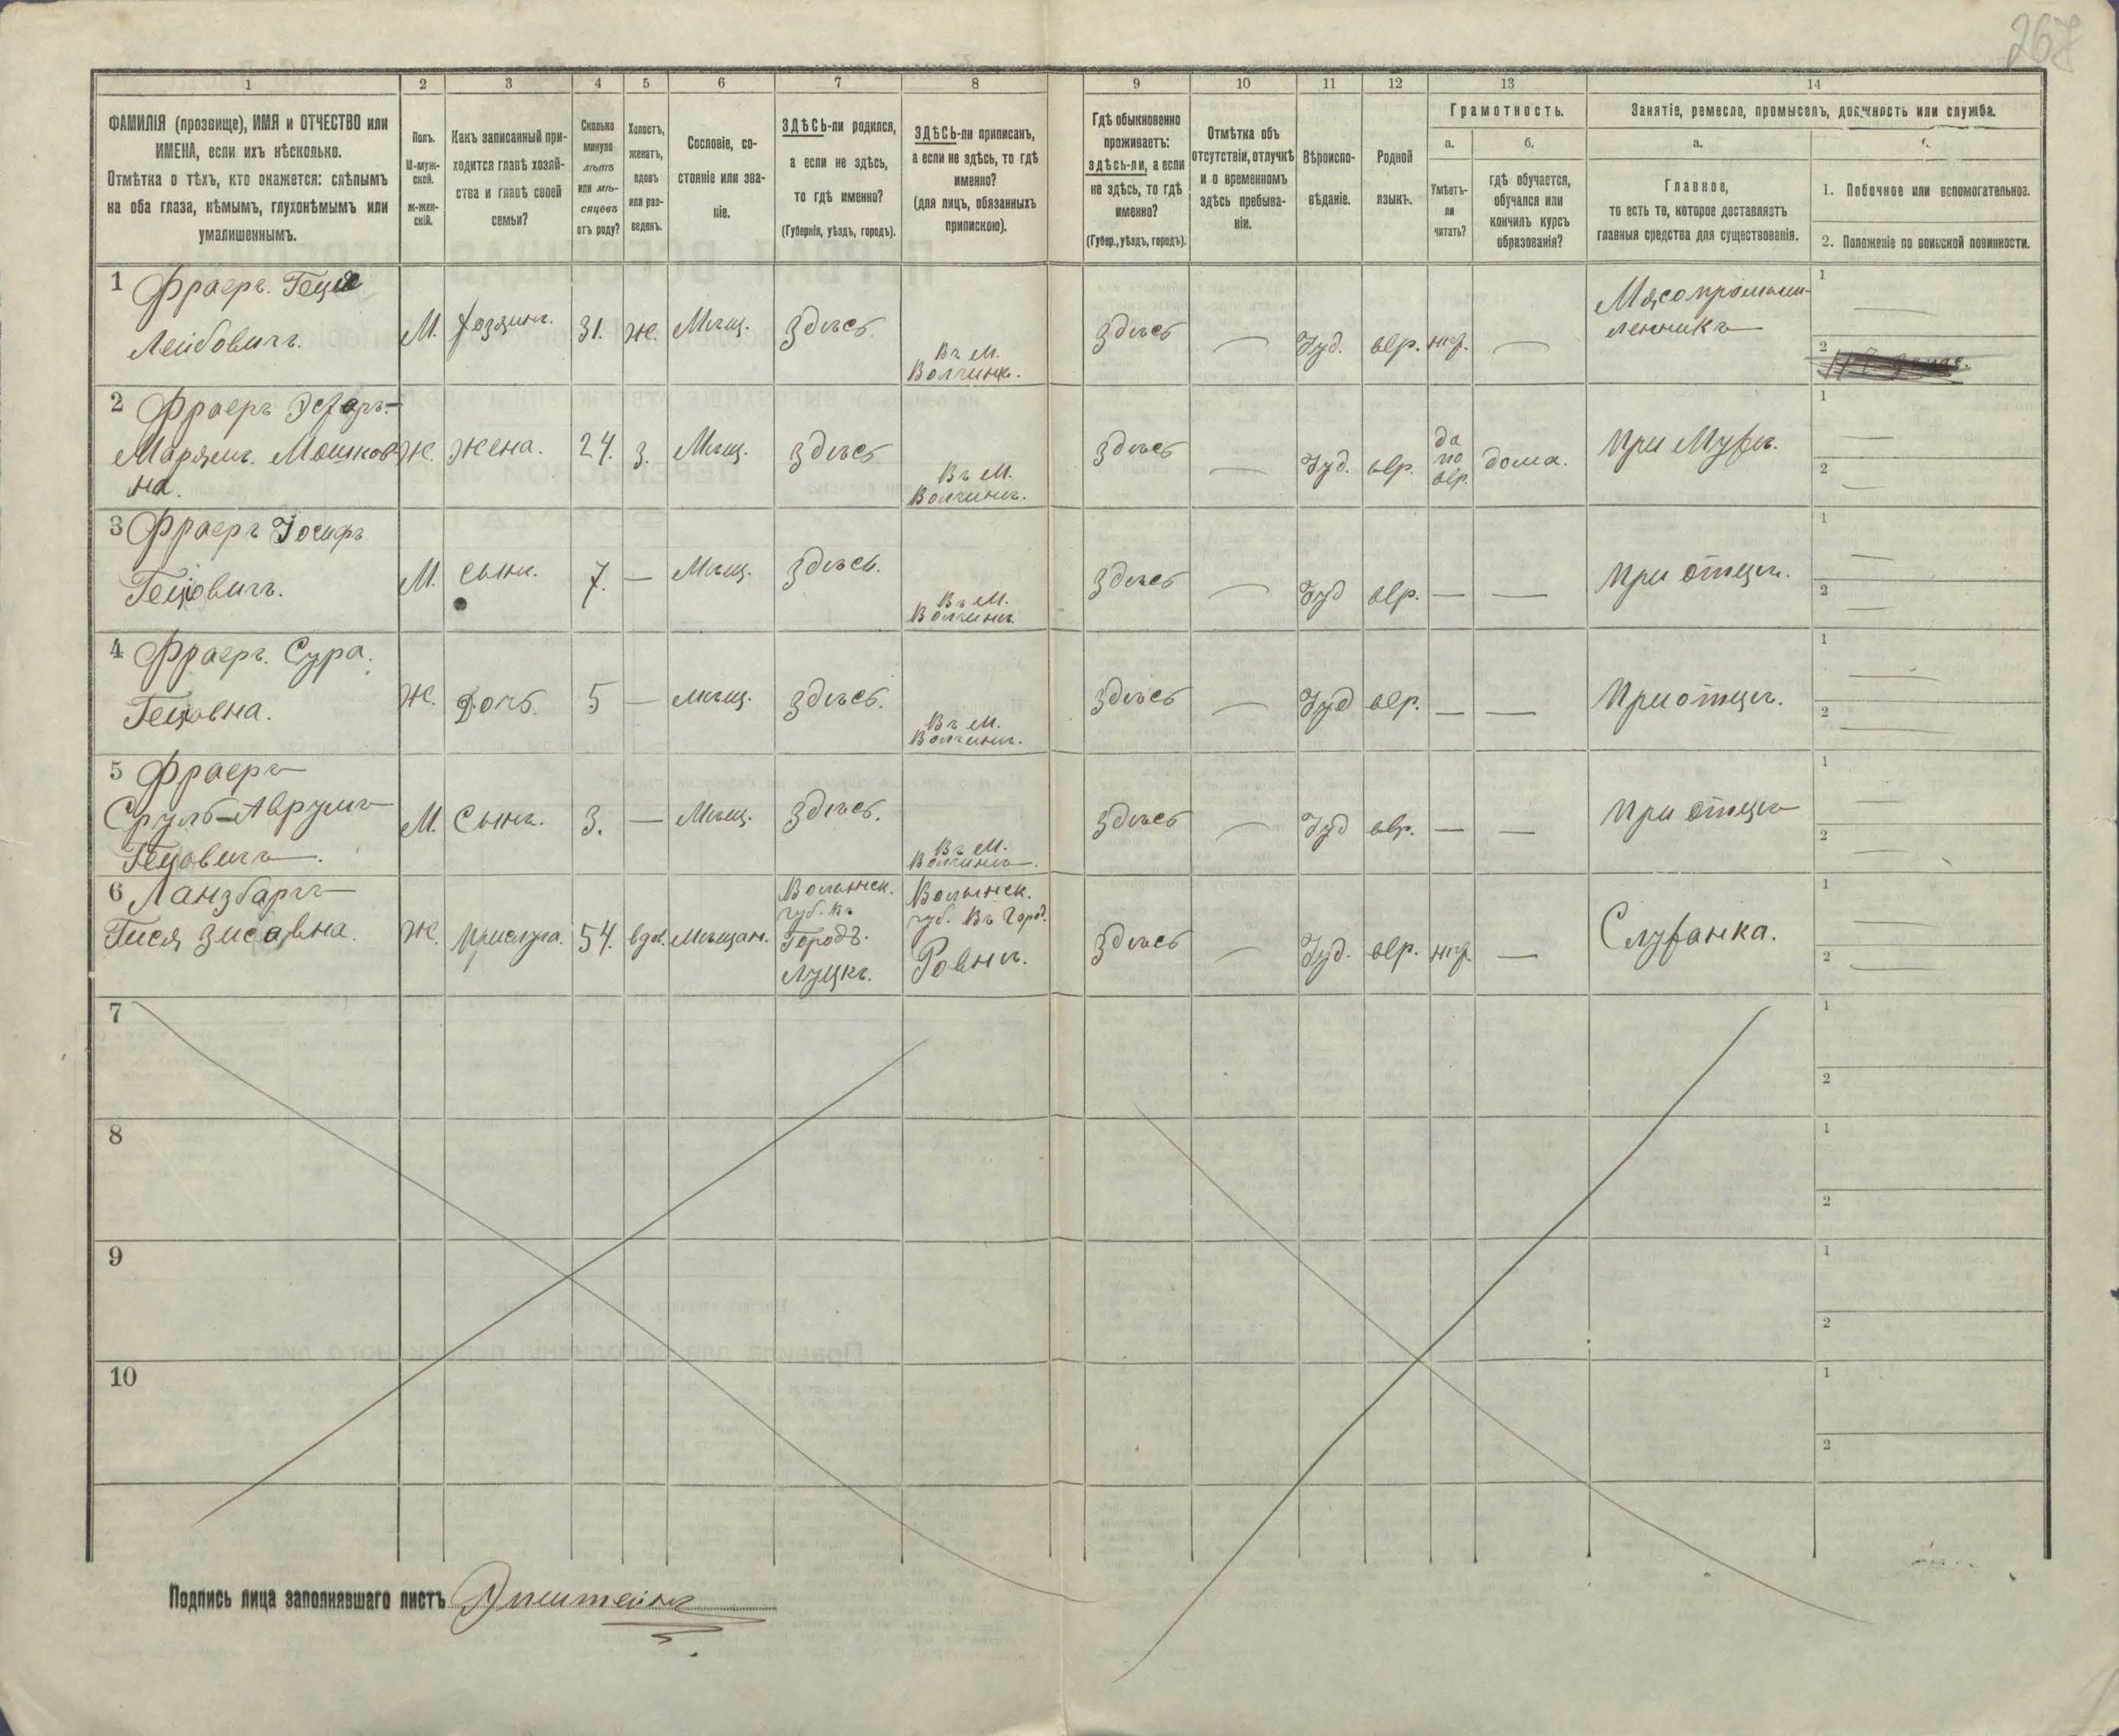 267
1 2 3 4 5 6 7 8 9 10 11 12 13 14
ФАМИЛІЯ (прозвище), ИМЯ и ОТЧЕСТВО или
ИМЕНА, если ихъ нѣсколько.
Отмѣтка о тѣхъ, кто окажется: слѣпымъ
на оба глаза, нѣмымъ, глухонѣмымъ или
умалишеннымъ.
Полъ.
М-муж-
ской.
ж-жен-
скій.
Какъ записанный при-
ходится главѣ хозяй-
ства и главѣ своей
семьи?
Сколько
минуло
лѣтъ
или мѣ-
сяцевъ
отъ роду?
Холостъ,
женатъ,
вдовъ
или раз-
веденъ.
Сословіе, со-
стояніе или зва-
ніе.
ЗДѢСЬ-ли родился,
а если не здѣсь,
то гдѣ именно?
(Губернія, уѣздъ, городъ).
ЗДѢСЬ-ли приписанъ,
а если не здѣсь, то гдѣ
именно?
(для лицъ, обязанныхъ
припискою).
Гдѣ обыкновенно
проживаетъ:
здѣсь-ли, а если
не здѣсь, то гдѣ
именно?
(Губер., уѣздъ, городъ).
Отмѣтка объ
отсутствіи, отлучкѣ
и о временномъ
здѣсь пребыва-
ніи.
Вѣроиспо-
вѣданіе.
Родной
языкъ.
Грамотность.
а.
Умѣетъ-
ли
читать?
б.
гдѣ обучается,
обучался или
кончилъ курсъ
образованія?
Занятіе, ремесло, промыселъ, должность или служба.
а.
Главное,
то есть то, которое доставляетъ
главныя средства для существованія.
1. Побочное или вспомогательное.
2. Положеніе по воинской повинности.
1 Фраеръ. Гецъ
Лейбовичъ.
М. Хозяинъ. 31. ж. Мѣщ. Здѣсь.
Въ М.
Волчинѣ.
Здѣсь — Іуд. евр. нѣт. —
Мясопромыш-
ленникъ
1 —
2
2 Фраеръ Эстеръ-
Марямъ. Мошков-
на.
Ж. Жена. 24. З. Мѣщ. Здѣсь
Въ М.
Волчинѣ.
Здѣсь — Іуд. евр.
да
по
евр.
дома. При Мужѣ.
1 —
2 —
3 Фраеръ Іосифъ
Гецовичъ.
М. сынъ. 7. — Мѣщ. Здѣсь.
Въ М.
Волчинѣ.
Здѣсь — Іуд евр. — — при отцѣ.
1 —
2 —
4 Фраеръ. Сура.
Гецовна.
Ж. Дочь. 5 — мѣщ. Здѣсь.
Въ М.
Волчинѣ.
Здѣсь — Іуд евр. — — При отцѣ.
1 —
2 —
5 Фраеръ
Сруль-Аврумъ
Гецовичъ.
М. Сынъ. 3. — Мѣщ. Здѣсь.
Въ М.
Волчинѣ.
Здѣсь — Іуд евр. — — при отцѣ
1 —
2 —
6 Ланзбаргъ
Гися Зисовна.
Ж. Прислуга. 54. вдов. Мѣщан.
Волынск.
губ. Въ
Городѣ.
Луцкѣ.
Волынск.
губ. Въ Город.
Ровнѣ.
Здѣсь — Іуд. евр. нѣт — Служанка.
1 —
2 —
7
1
2
8
1
2
9
1
2
10
1
2
Подпись лица заполнявшаго листъ